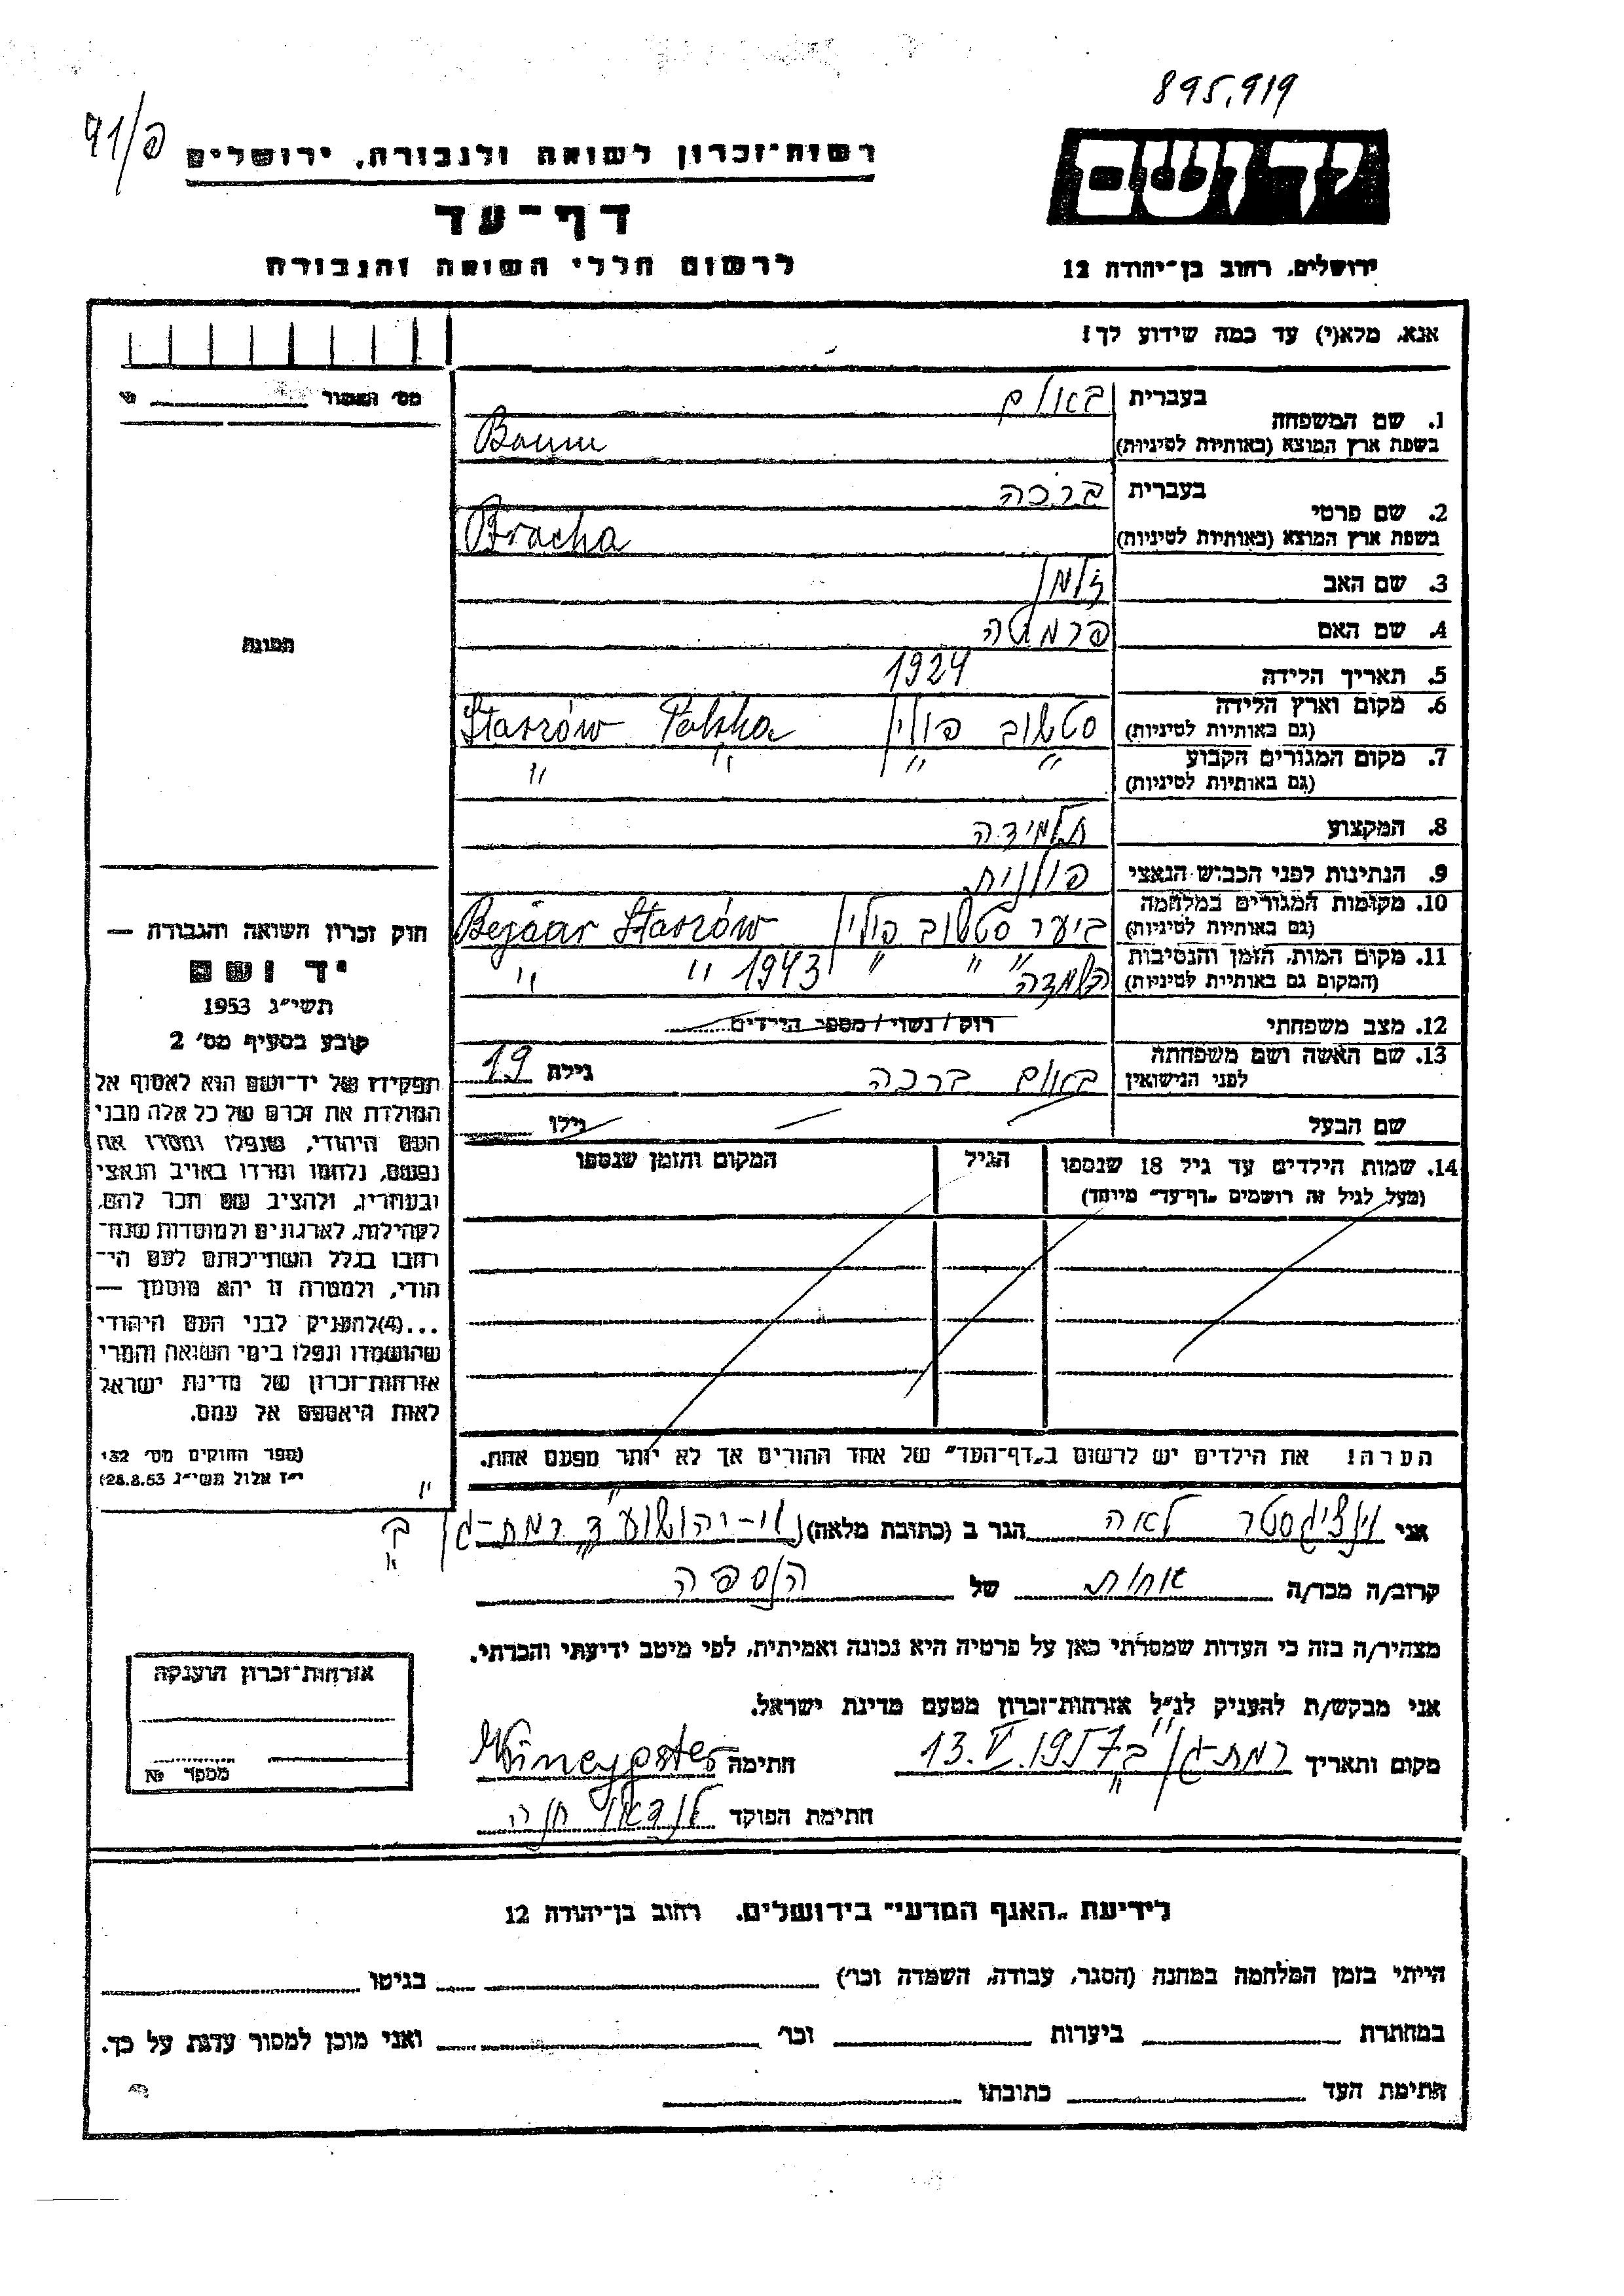 895,919
91/פ
רשות־זכרון לשואה ולגבורה, ירושלים
יד ושם
דף־עד
לרשום חללי השואה והגבורה
ירושלים, רחוב בן־יהודה 12
אנא, מלא(י) עד כמה שידוע לך!
מס׳ האשור
1. שם המשפחה
בעברית באום
בשפת ארץ המוצא (באותיות לטיניות) Baum
2. שם פרטי
בעברית ברכה
בשפת ארץ המוצא (באותיות לטיניות) Bracha
3. שם האב זלמן
4. שם האם
5. תאריך הלידה 1924
6. מקום וארץ הלידה
(גם באותיות לטיניות) סטשוב פולין Staszów Polska
7. מקום המגורים הקבוע
(גם באותיות לטיניות) " " " "
8. המקצוע תלמידה
9. הנתינות לפני הכבוש הנאצי פולנית
10. מקומות המגורים במלחמה
(גם באותיות לטיניות) ביער סטשוב פולין Bejaar Staszów
11. מקום המות, הזמן והנסיבות
(המקום גם באותיות לטיניות) השמדה " " " 1943 " "
12. מצב משפחתי רוק/נשוי/מספר הילדים
13. שם האשה ושם משפחתה
לפני הנישואין באום ברכה גילה 19
שם הבעל גילו
14. שמות הילדים עד גיל 18 שנספו הגיל המקום והזמן שנספו
(מעל לגיל זה רושמים „דף־עד” מיוחד)
הערה! את הילדים יש לרשום ב„דף־העד” של אחד ההורים אך לא יותר מפעם אחת.
תמונה
חוק זכרון השואה והגבורה —
יד ושם
תשי״ג 1953
קובע בסעיף מס׳ 2
תפקידו של יד־ושם הוא לאסוף אל
המולדת את זכרם של כל אלה מבני
העם היהודי, שנפלו ומסרו את
נפשם, נלחמו ומרדו באויב הנאצי
ובעוזריו, ולהציב שם וזכר להם,
לקהילות, לארגונים ולמוסדות שנח־
רבו בגלל השתייכותם לעם הי־
הודי, ולמטרה זו יהא מוסמך —
...(4)להעניק לבני העם היהודי
שהושמדו ונפלו בימי השואה והמרי
אזרחות־זכרון של מדינת ישראל
לאות היאספם אל עמם.
(ספר החוקים מס׳ 132
י״ז אלול תשי״ג 28.8.53)
אני וינציגסטר לאה הגר ב (כתובת מלאה) נוי-יהושוע ד רמת-גן
קרוב/ה מכר/ה אחות של הנספה
מצהיר/ה בזה כי העדות שמסרתי כאן על פרטיה היא נכונה ואמיתית, לפי מיטב ידיעתי והכרתי.
אני מבקש/ת להעניק לנ״ל אזרחות־זכרון מטעם מדינת ישראל.
מקום ותאריך רמת-גן ב 13.V.1957 חתימה
חתימת הפוקד לנדאו חנה
אזרחות־זכרון הוענקה
מספר №
לידיעת „האגף המדעי” בירושלים. רחוב בן־יהודה 12
הייתי בזמן המלחמה במחנה (הסגר, עבודה, השמדה וכו׳) בגיטו
במחתרת ביערות וכו׳ ואני מוכן למסור עדות על כך.
חתימת העד כתובתו